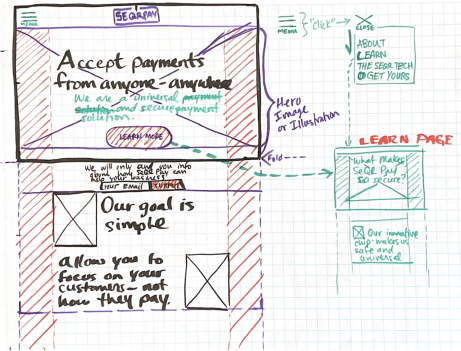 MENU
SEQRPAY
Accept payments
from anyone - anywhere
We are a universal payment
solution and secure payment
solution.
LEARN MORE
Hero
Image
or Illustration
Fold
We will only send you info
about how SEQR Pay can
help your business!
YOUR EMAIL SUBMIT
Our goal is
simple
allow you to
focus on your
customers - not
how they pay.
MENU
"click"
CLOSE
ABOUT
LEARN
THE SEQR TECH
GET YOURS
LEARN PAGE
What makes
SEQR Pay
so secure?
Our innovative
chip makes us
safe and
universal